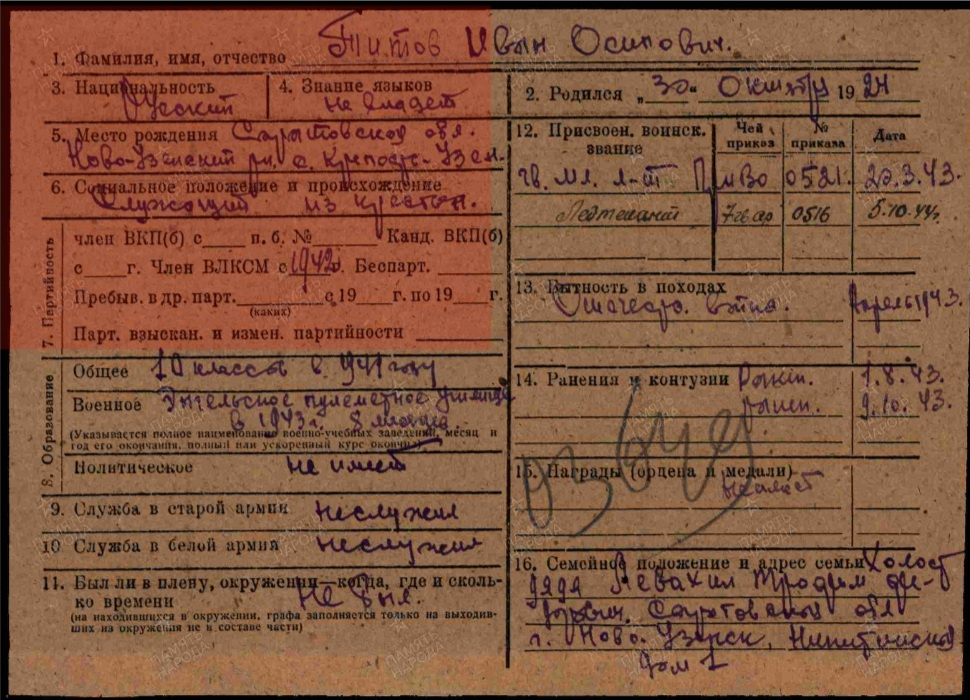 1. Фамилия, имя, отчество Титов Иван Осипович.
3. Национальность Русский
4. Знание языков не владеет
2. Родился „30“ Октября 1924
5. Место рождения Саратовской обл.
Ново-Узенский рн. с. -Узен.
6. Социальное положение и происхождение
Служащий из крестьян.
7. Партийность
член ВКП(б) с п.б. № Канд. ВКП(б)
с г. Член ВЛКСМ с 1942 г. Беспарт.
Пребыв. в др. парт. с 19 г. по 19 г.
(каких)
Парт. взыскан. и измен. партийности
8. Образование
Общее 10 классов в 941 году
Военное Энгельское пулеметное училище
в 1943 г. 8 месяцев
(Указывается полное наименование военно-учебных заведений, месяц и
год его окончания, полный или ускоренный курс окончил)
Политическое не имеет
9. Служба в старой армии не служил
10 Служба в белой армии не служил
11. Был ли в плену, окружении—когда, где и сколь-
ко времени не был.
(на находившихся в окружении, графа заполняется только на выходив-
ших из окружения не в составе части)
12. Присвоен. воинск. звание Чей приказ № приказа Дата
гв. мл. л-т ПриВо 0521. 20.3.43.
Лейтенант 0516 5.10.44.
13. Бытность в походах
Отечеств. война. Апрель 1943.
14. Ранения и контузии Ранен. 1.8.43.
Ранен. 9.10.43.
15. Награды (ордена и медали)
не имеет
16. Семейное положение и адрес семьи Холост
дядя
Саратовская обл
г. Ново-Узенск,
дом 1